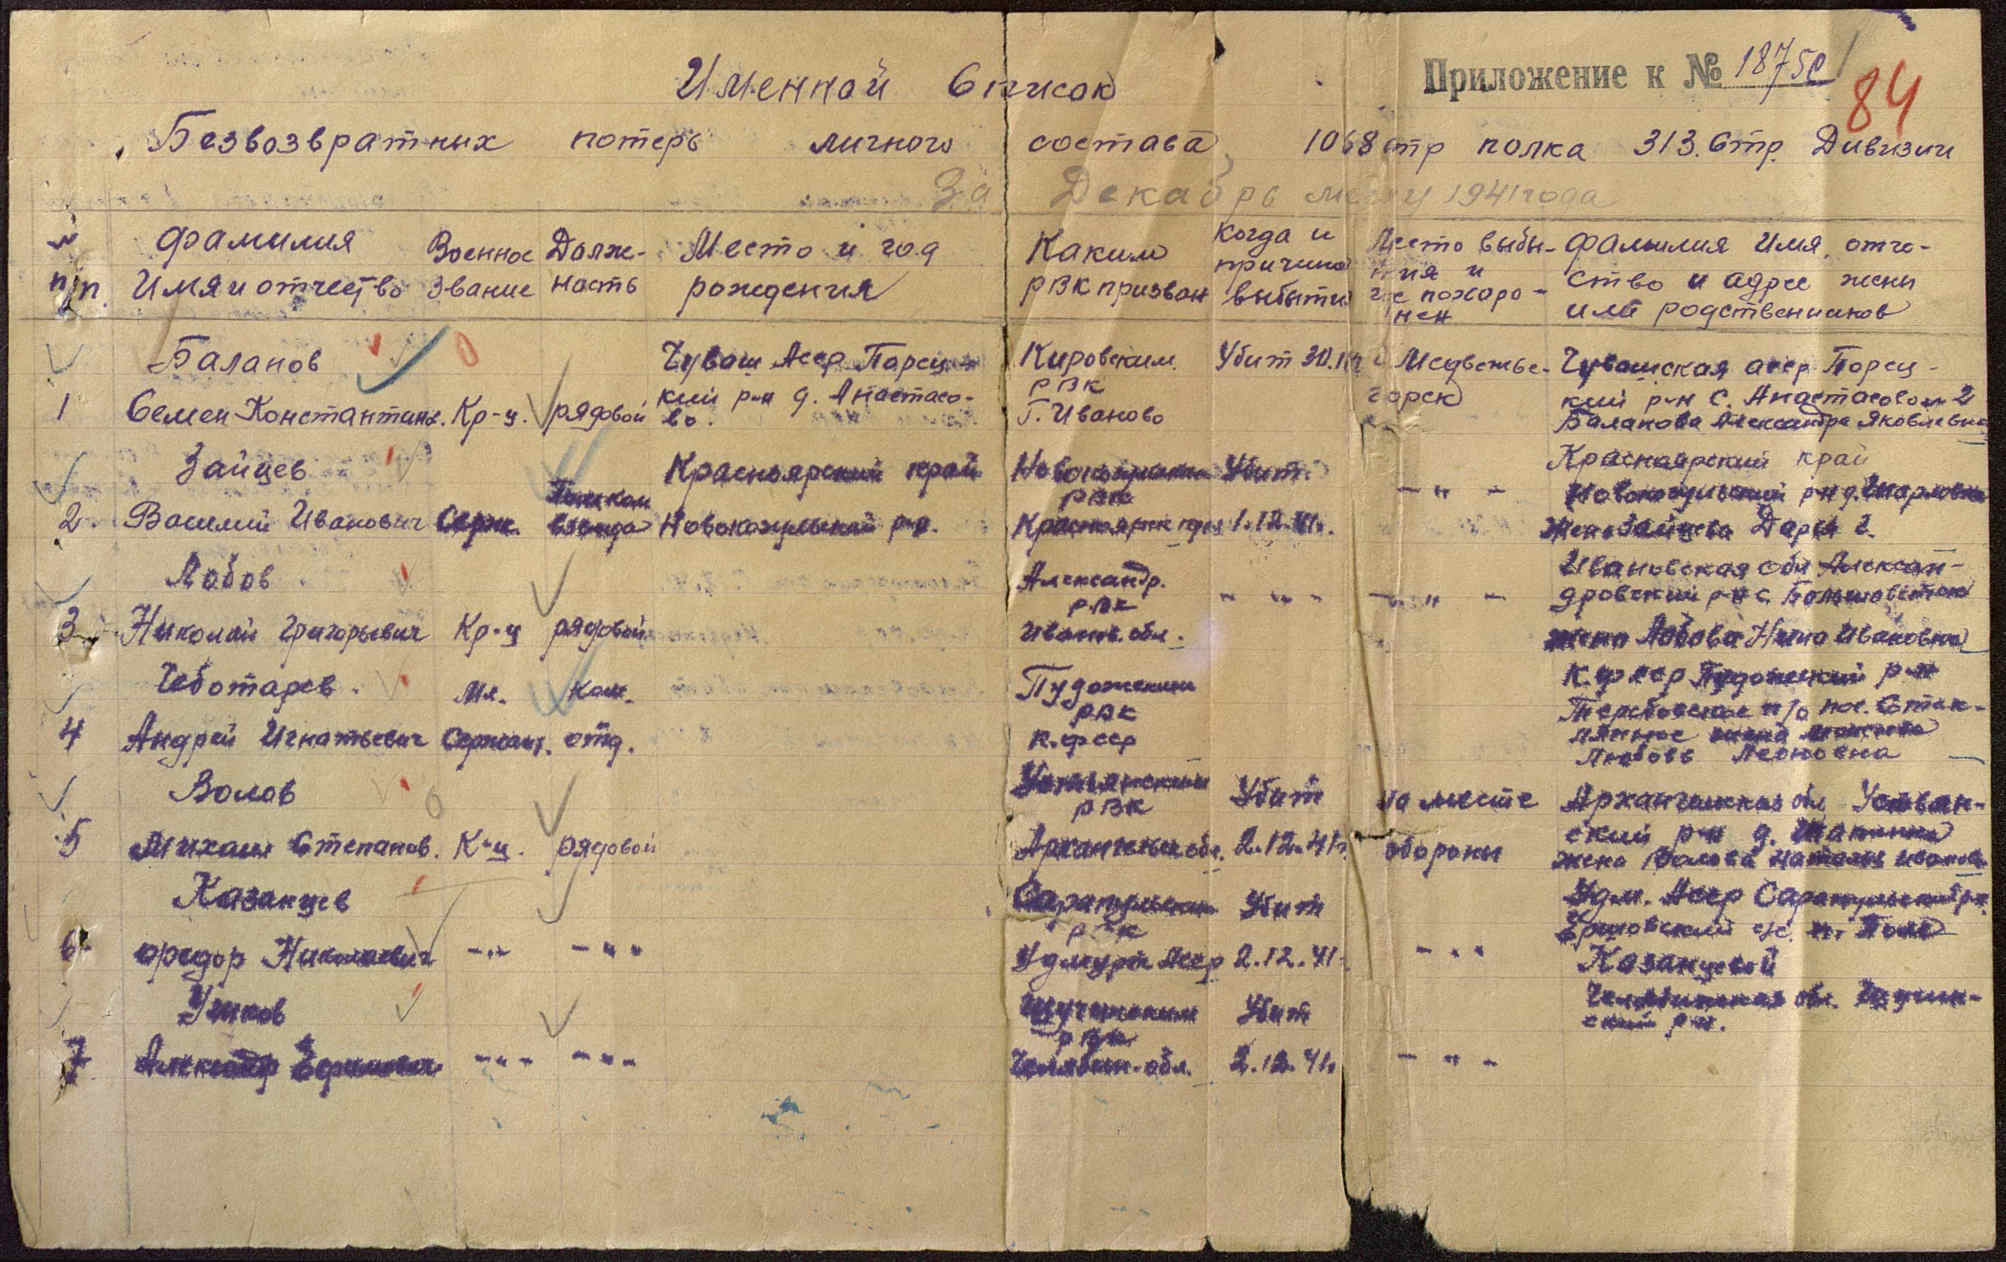 Приложение к № 18750
84
Именной Список
Безвозвратных потерь личного состава 1068 стр полка 313. Стр. Дивизии
За Декабрь месяц 1941 года
№ п/п. Фамилия Имя и отчество
Военное звание
Должность
Место и год рождения
Каким РВК призван
Когда и причина выбытия
Место выбытия и где похоронен
Фамилия Имя, отчество и адрес жены или родственников
1 Баланов
Семен Константинов. Кр-ц. рядовой
Чуваш Асср Парец-
кий р-н д. Анастасо-
во.
Кировским
РВК
г. Иваново
Убит 30.
Медвежье-
горск
Чувашская асср Порец-
кий р-н с. Анастасово 2
Баланова Александра Яковлевна
2. Зайцев
Василий Иванович Серж. Помком
взвода
Красноярский край
Новокозульский р-н.
РВК
Красноярск края
Убит
1.12.41г.
- " -
Красноярский край
Новокозульский р-н д.
жена Зайцева Дарья
3 Лобов
Николай Григорьевич Кр-ц рядовой
Александр.
РВК
Иванов. обл.
- " -
- " -
Ивановская обл Алексан-
дровский р-н с.
жена Лобова Нина Ивановна
4 Чеботарев.
Андрей Игнатьевич
Мл.
Сержант.
ком.
отд.
Пудожским
РВК
К.фсср
К.фсср Пудожский р-н
жена
Любовь Леоновна
5 Волов
Михаил Степанов. К-ц. рядовой
Устьянский
РВК
Архангельс обл.
Убит
2.12.41г.
на месте
обороны
Архангельская обл Устьян-
ский р-н д.
жена Волова Наталья Иванов.
6 Казанцев
Федор Николаевич - " - - " -
Сарапульским
РВК
Удмурт Асср
Убит
2.12.41г.
- " -
Удм. Асср Сарапульский р-н.
Казанцевой
7 Ушков
Александр Ефимович - " - - " -
Щучанским
РВК
Челябин. обл.
Убит
2.12.41г.
- " -
Челябинская обл. Щучан-
ский р-н.